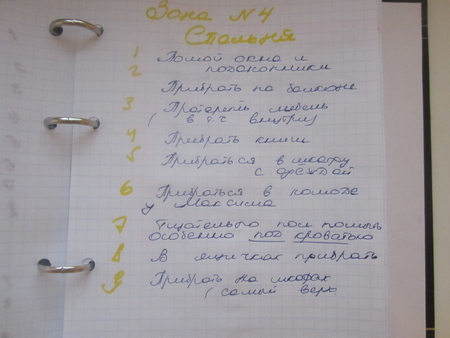 Зона №4
Спальня
1 Помой окна и
2 подоконники
Прибрать на балконе
3 Протереть мебель
(в т.ч внутри)
4 Прибрать книги
5 Прибраться в шкафу
с одеждой
6 Прибраться в комоде
у Максима
7 Тщательно пол помыть
особенно под кроватью
8 В ящичках прибрать
9 Прибрать на шкафах
(самый верх